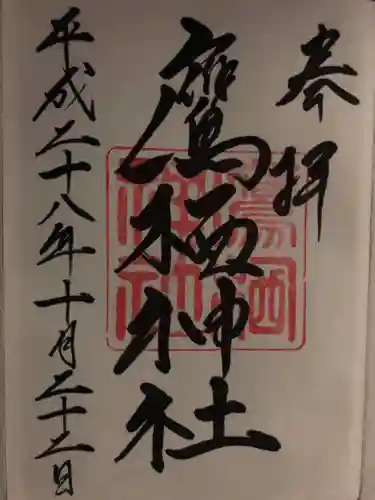 奉拝
鷹栖神社
鷹栖神社
平成二十八年十月二十二日